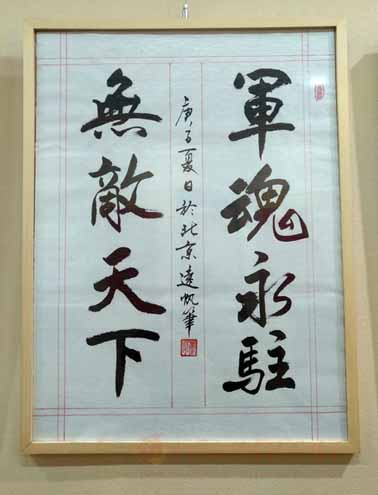 軍魂永駐
無敵天下
庚子夏日於北京遠帆筆